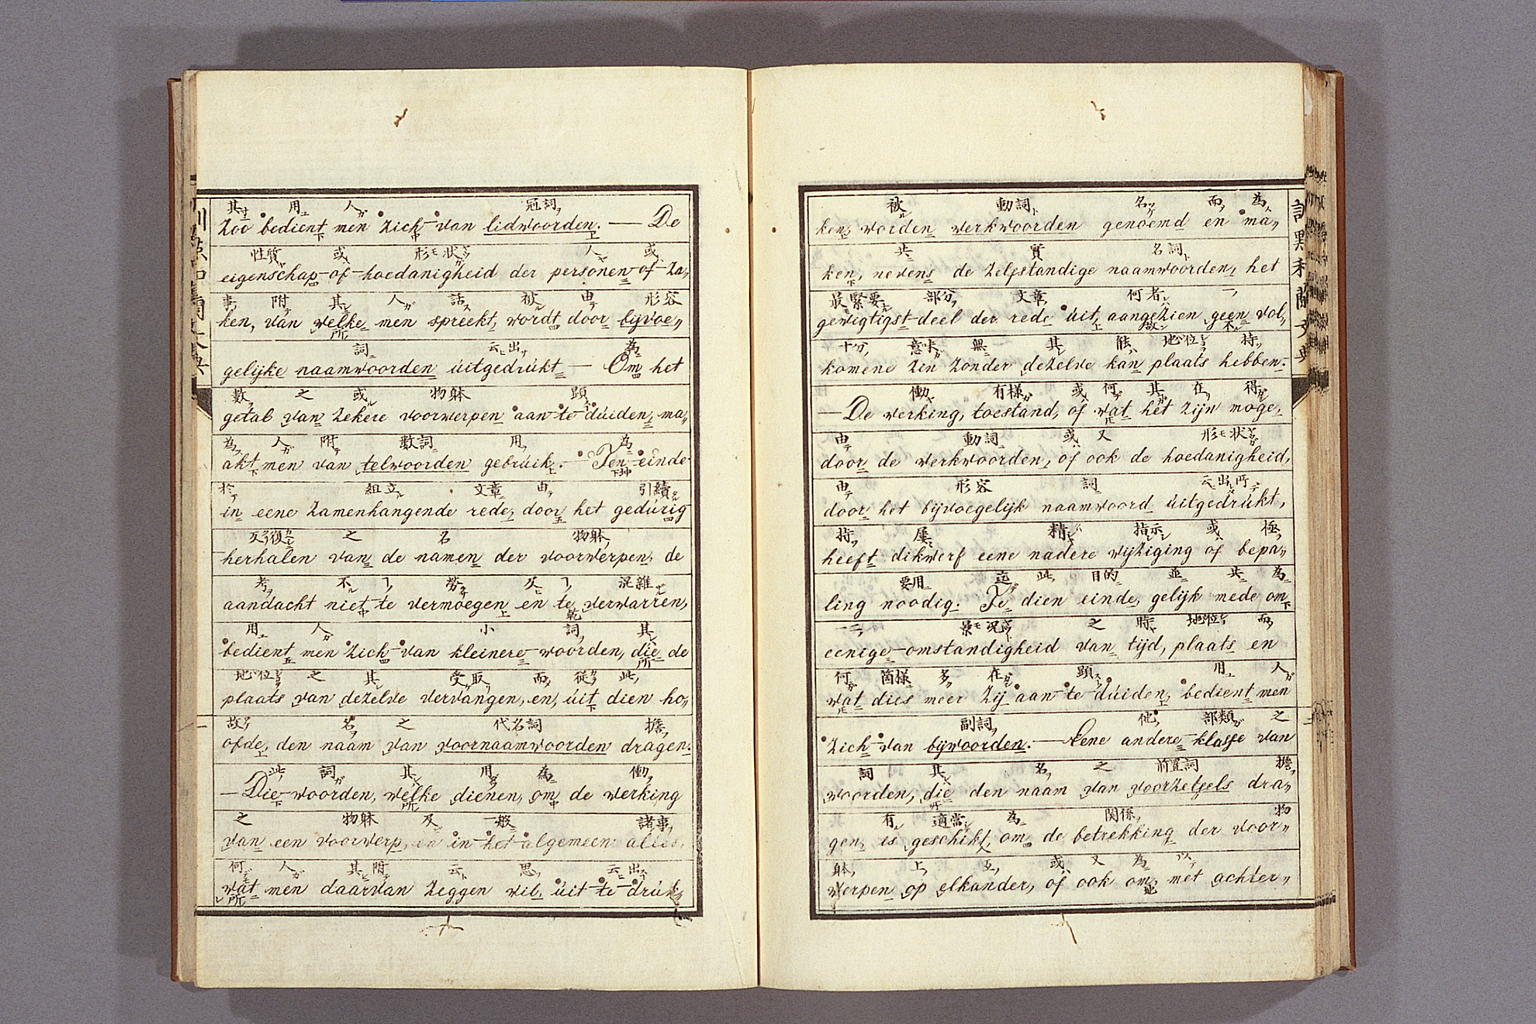 其 用 人 冠詞
Zoo bedient men zich van lidwoorden. — De
性質 或 形状 人 或
eigenschap of hoedanigheid der personen of za„
事 附 其 人 話 被 由 形容
ken, van welke men spreekt, wordt door bijvoe„
詞 云出 為
gelijke naamwoorden uitgedrúkt — Om het
數 之 或 物躰 顕
getal van zekere voorwerpen aan te dúiden, ma„
為 人 附 數詞 用 為
akt men van telwoorden gebrúik. — Ten einde
於 組立 文章 由 引續
in eene zamenhangende rede, door het gedúrig
反復 之 名 物躰
herhalen van de namen der voorwerpen, de
考 不 勞 混雜
aandacht niet te vermoegen en te verwarren,
用 人 小 詞 其
bedient men zich van kleinere woorden, die de
地位 之 其 受取 而 従 此
plaats van dezelve vervangen, en, úit dien ho„
故 名 之 代名詞 擔
ofde, den naam van voornaamwoorden dragen.
此 詞 其 用 為 働
— Die woorden, welke dienen, om de werking
之 物躰 及 一般 諸事
van een voorwerp, en in het algemeen alles,
何 人 其附 云 思 云出
wat men daarvan zeggen wil, úit te drúk„
訓點和蘭文典
被 動詞 名 而 為
ken, worden werkwoorden genoemd en ma„
共 實 名詞
ken, nevens de zelfstandige naamwoorden, het
最緊要 部分 文章 何者 一
gewigtigst deel der rede úit, aangezien geen vol„
十分 意味 無 其 能 地位 持
komene zin zonder dezelve kan plaats hebben.
働 有様 或 何 其 在 得
— De werking, toestand, of wat het zijn moge,
由 動詞 或 又 形状
door de werkwoorden, of ook de hoedanigheid,
由 形容 詞 云出所
door het bijvoegelijk naamwoord úitgedrúkt,
持 屢 精 指示 或 極
heeft dikwerf eene nadere wijziging of bepa„
要用 此 目的 並 共 為
ling noodig. Te dien einde, gelijk mede om
一二 景况 之 時 地位 而
eenige omstandigheid van tijd, plaats en
何 箇様 多 在 顕 用 人
wat dies meer zij aan te dúiden, bedient men
副詞 他 部類 之
zich van bijwoorden. — Eene andere klasse van
詞 其 名 之 前置詞 擔
woorden, die den naam van voorzetsels dra„
有 適當 為 関係 物
gen, is geschikt, om de betrekking der voor„
躰 上 互 或 又 為 以
werpen op elkander, of ook om, met achter„